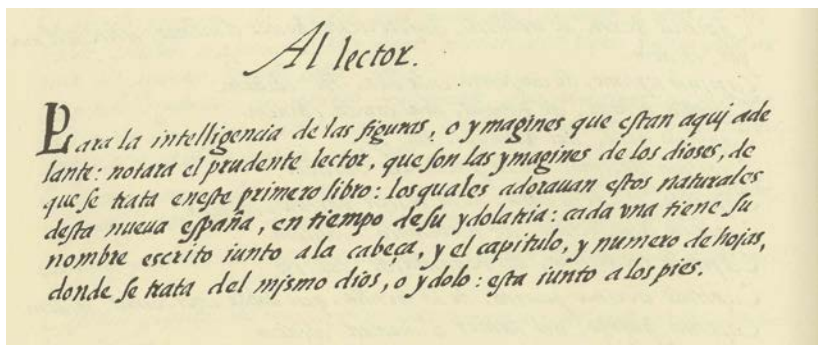 Al lector.
Para la intelligencia de las figuras, o ymagines que estan aqui ade
lante: notara el prudente lector, que son las ymagines de los dioses, de
que se trata eneste primero libro: los quales adorauan estos naturales
desta nueua españa, en tiempo de su ydolatria: cada vna tiene su
nombre escrito iunto ala cabeça, y el capitulo, y numero de hojas,
donde se trata del mismo dios, o ydolo: esta iunto a los pies.